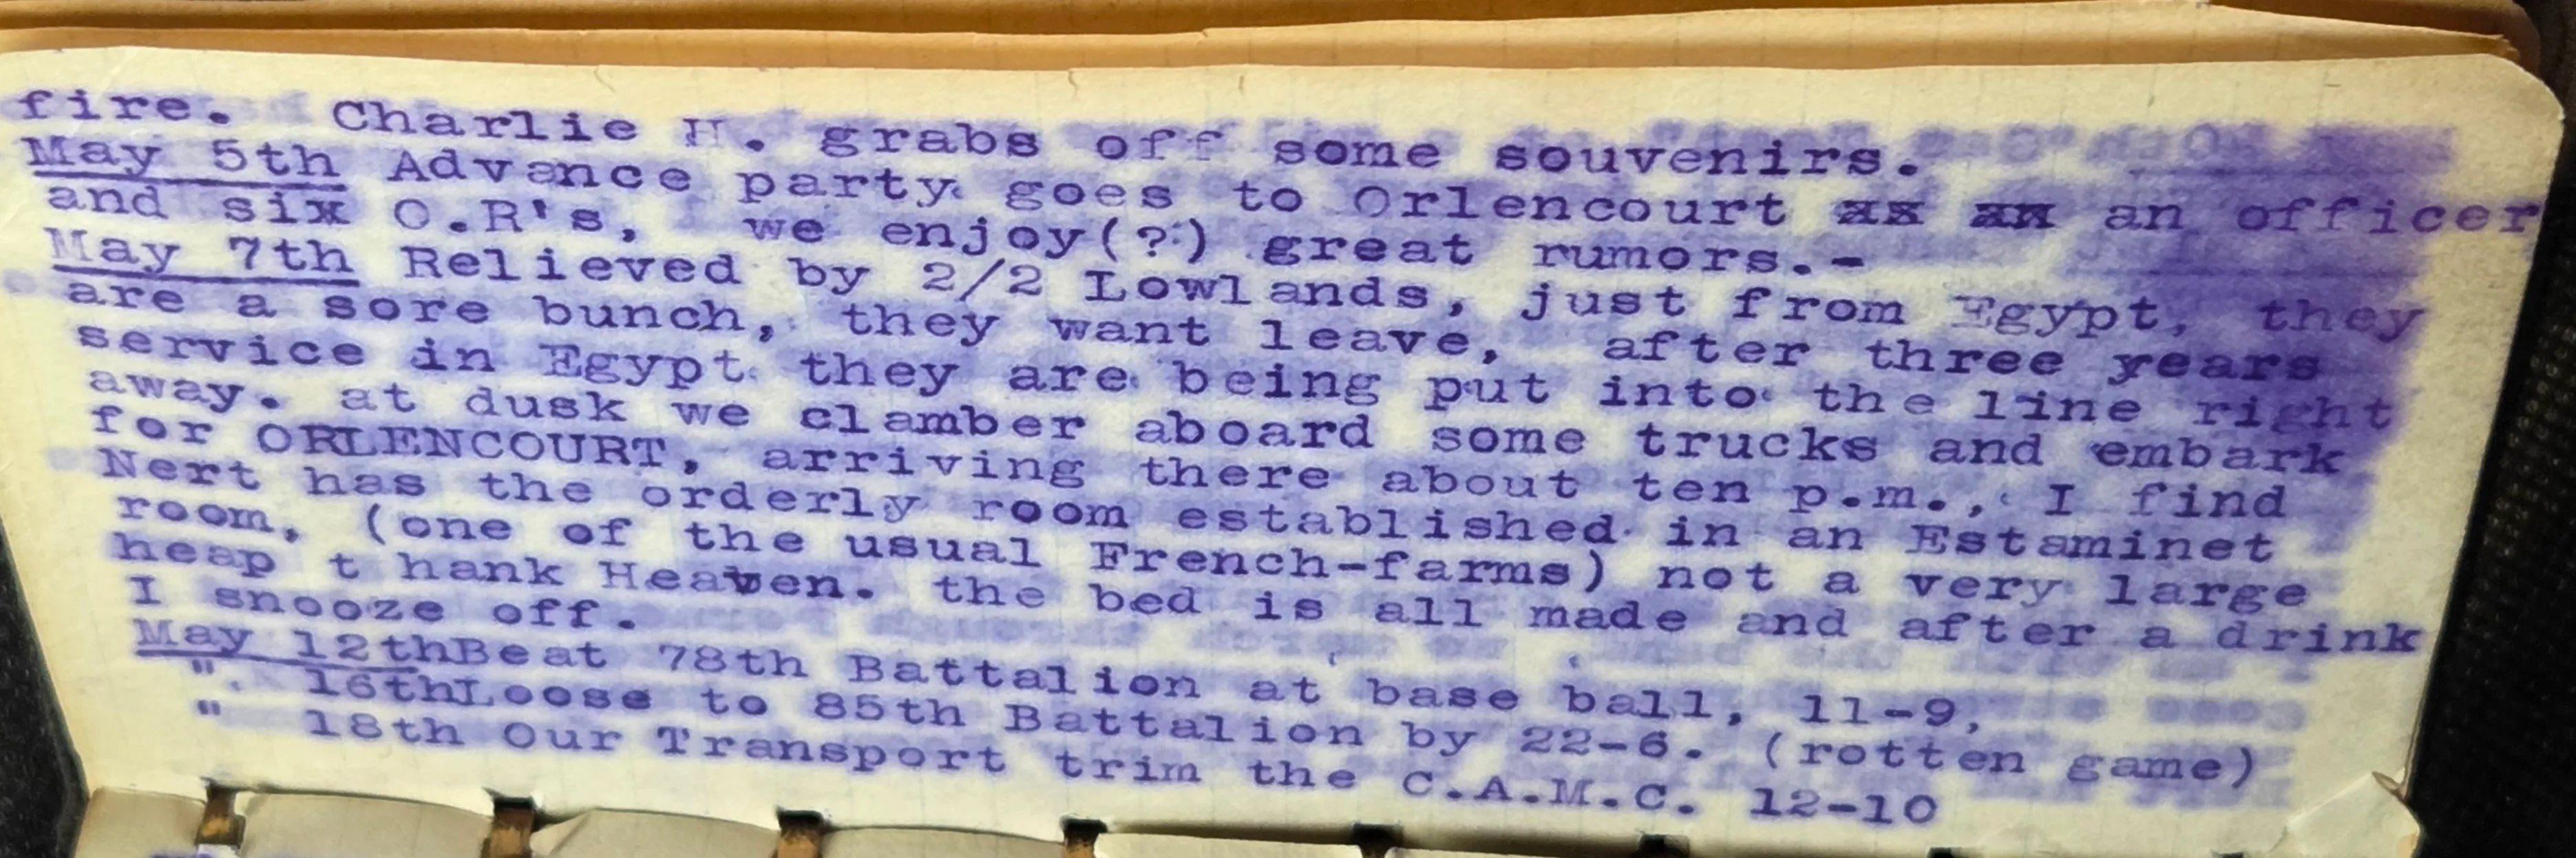 fire. Charlie H. grabs off some souvenirs.
May 5th Advance party goes to Orlencourt as an an officer
and six O.R's, we enjoy(?) great rumors.-
May 7th Relieved by 2/2 Lowlands, just from Egypt, they
are a sore bunch, they want leave, after three years
service in Egypt they are being put into the line right
away. at dusk we clamber aboard some trucks and embark
for ORLENCOURT, arriving there about ten p.m., I find
Nert has the orderly room established in an Estaminet
room, (one of the usual French-farms) not a very large
heap t hank Heaven. the bed is all made and after a drink
I snooze off.
May 12thBeat 78th Battalion at base ball, 11-9,
". 16thLoose to 85th Battalion by 22-6. (rotten game)
" 18th Our Transport trim the C.A.M.C. 12-10